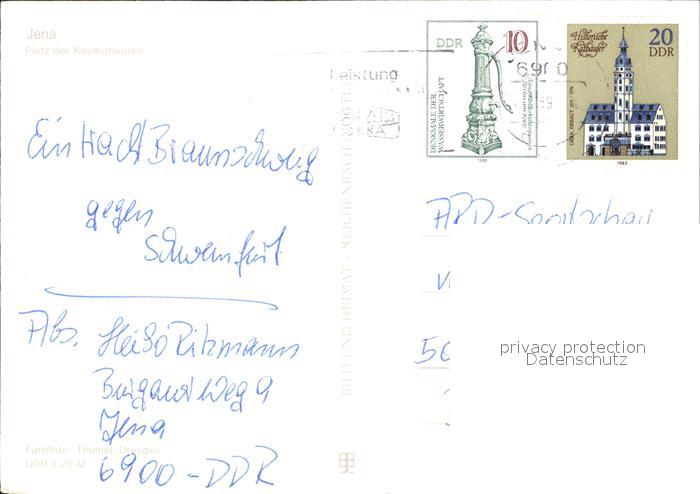 Jena
Platz der Kosmonauten
DDR 10
DENKMALE DER
WASSERWIRTSCHAFT
1986
Historische
Rathäuser
20
DDR
GERA, ERBAUT 1573 - 1576
1983
Leistung
6900
JENA
Eintracht Braunschweig
gegen
Schweinfurt
Abs. Heiko Ritzmann
Weg 9
Jena
6900 - DDR
ARD-Sportschau
BILD UND HEIMAT · REICHENBACH
privacy protection
Datenschutz
Farbfoto: Thienel, Dresden
DDR 0,20 M